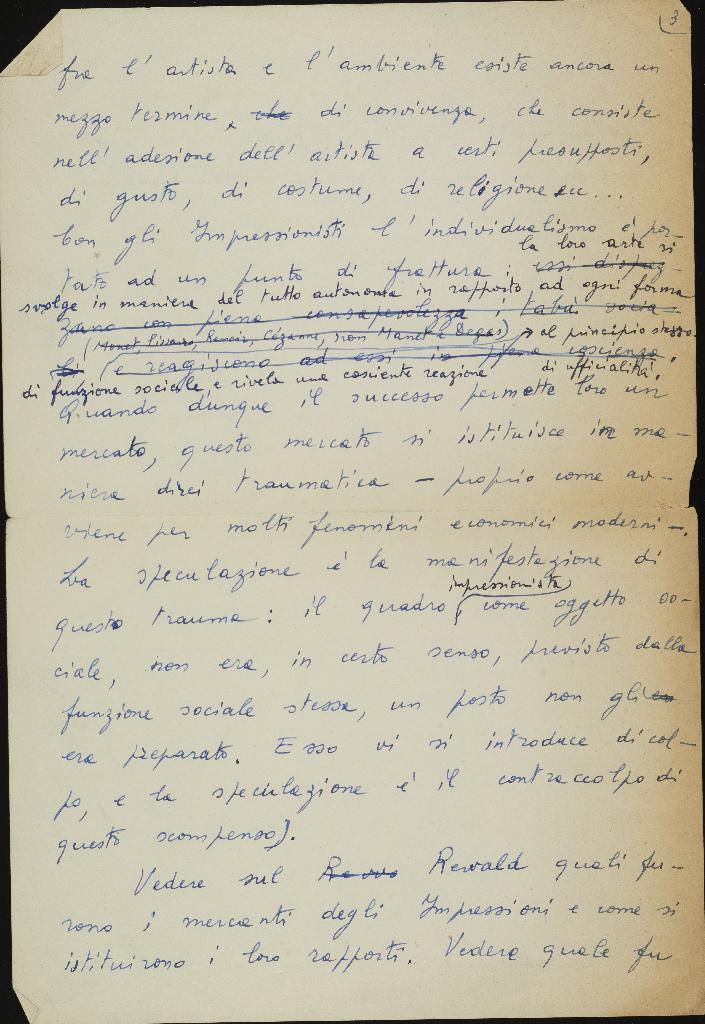 3
fra l'artista e l'ambiente esiste ancora un
mezzo termine, che di convivenza, che consiste
nell'adesione dell'artista a certi presupposti,
di gusto, di costume, di religione ecc...
Con gli Impressionisti l'individualismo è por-
la loro arte si
tato ad un punto di frattura: essi disprez-
svolge in maniera del tutto autonoma in rapporto ad ogni forma
zano con piena consapevolezza i tabù socia-
(Monet, Pissarro, Renoir, Cézanne, non Manet e Degas) al principio stesso
li e reagiscono ad essi in piena coscienza.
di funzione sociale, e rivela una cosciente reazione di ufficialità.
Quando dunque il successo permette loro un
mercato, questo mercato si istituisce in ma-
niera direi traumatica - proprio come av-
viene per molti fenomeni economici moderni -.
La speculazione è la manifestazione di
impressionista
questo trauma: il quadro, come oggetto so-
ciale, non era, in certo senso, previsto dalla
funzione sociale stessa, un posto non gli
era preparato. Esso vi si introduce di col-
po, e la speculazione è il contraccolpo di
questo scompenso).
Vedere sul Rewald quali fu-
rono i mercanti degli Impressioni e come si
istituirono i loro rapporti. Vedere quale fu